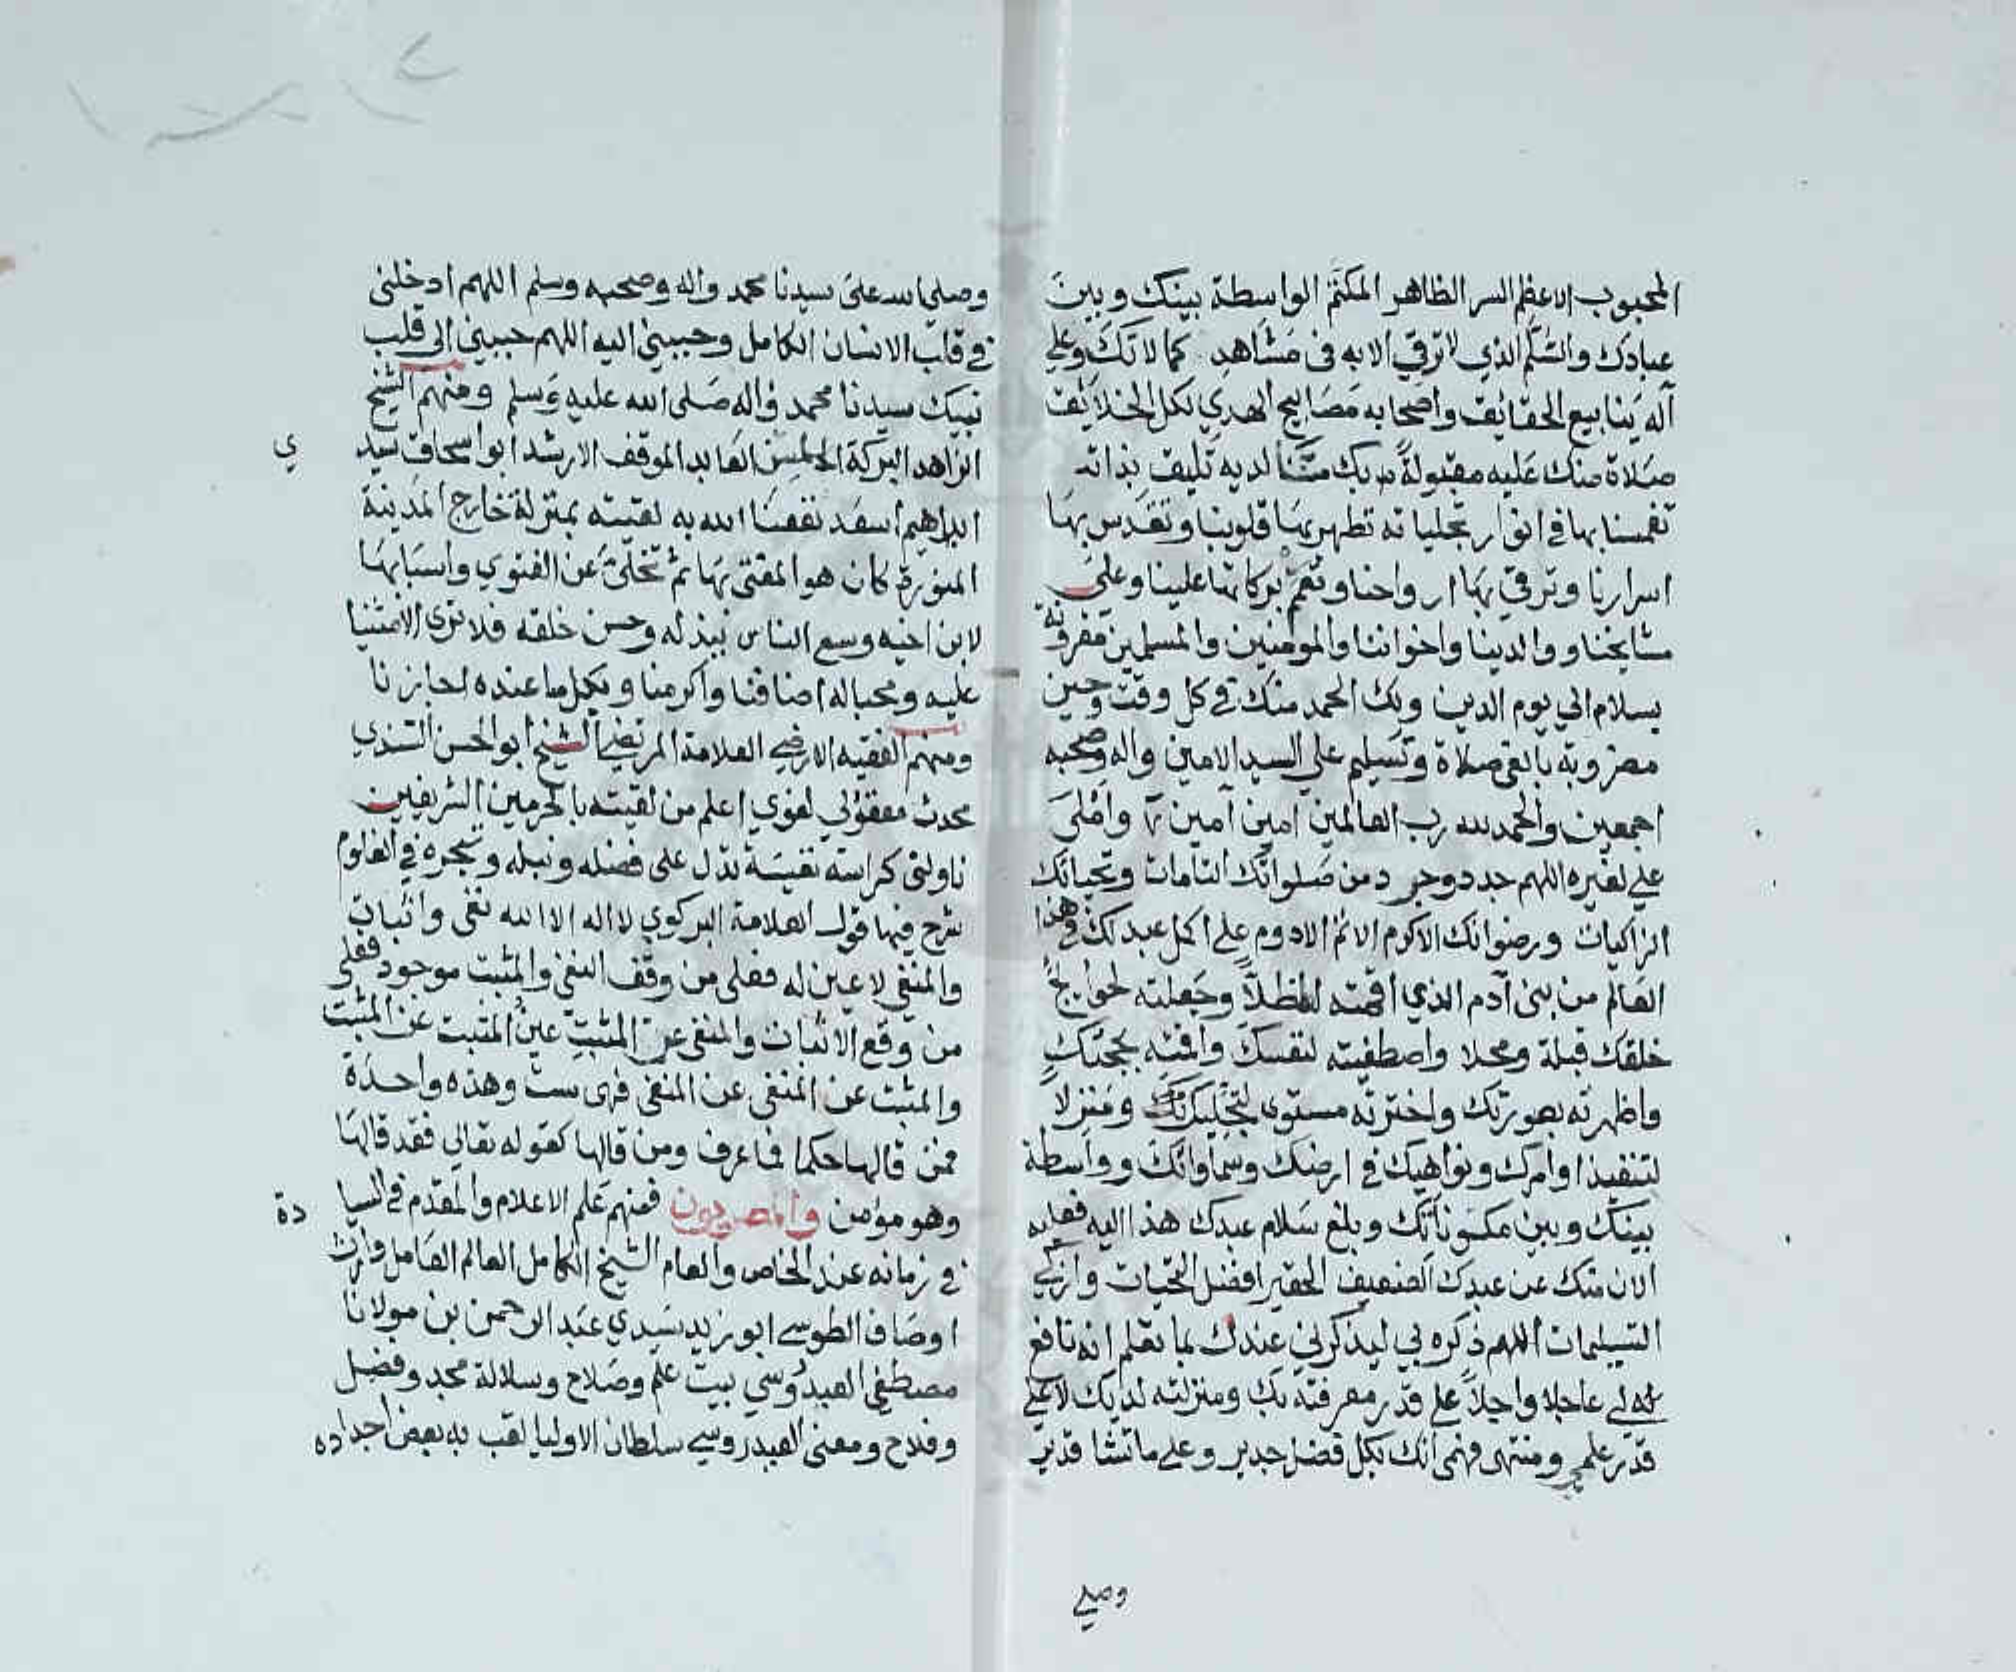 المحبوب الاعظم السر الظاهر المكتم الواسطة بينك وبين
عبادك والسُّلَّم الذي لا ترقي الا به في مشاهد كمالاتك وعلي
آله ينابيع الحقائق واصحابه مصابيح الهدي لكل الخلائق
صلاة منك عليه مقبولة بك منا لديه تليق بذاته
تغمسنا بها في انوار تجلياته تطهر بها قلوبنا وتقدس بها
اسرارنا وترقي بها ارواحنا وتعم بركاتها علينا وعلي
مشايخنا ووالدينا واخواننا والمومنين والمسلمين مقرونة
بسلام الي يوم الدين وبك الحمد منك في كل وقت وحين
مضروبة بالفي صلاة وتسليم علي السيد الامين واله وصحبه
اجمعين والحمد لله رب العالمين آمين آمين واملي
علي لغيره اللهم جدد وجرد من صلواتك التامات وتحياتك
الزاكيات ورضوانك الاكرم الاتم الادوم علي اكمل عبد لك في هذا
العالم من بني آدم الذي اقمته لك ظلا وجعلته لحوائج
خلقك قبلة ومحلا واصطفيته لنفسك واقمته بحجتك
واظهرته بصورتك واخترته مستوي لتجليك ومنزلا
لتنفيذ اوامرك ونواهيك في ارضك وسماواتك وواسطة
بينك وبين مكوناتك وبلغ سلام عبدك هذا اليه فعليه
الان منك عن عبدك الضعيف الحقير افضل التحيات وازكي
التسليمات اللهم ذكره بي ليذكرني عندك بما تعلم انه نافع
لي عاجلا واجلا علي قدر معرفته بك ومنزلته لديك لا علي
قدر علمي ومنتهي فهمي انك بكل فضل جدير وعلي ما تشا قدير
وصلي
وصلي الله علي سيدنا محمد واله وصحبه وسلم اللهم ادخلني
في قلب الانسان الكامل وحببني اليه اللهم حببني الي قلب
نبيك سيدنا محمد واله صلى الله عليه وسلم ومنهم الشيخ
الزاهد البركة العابد الموقف الارشد ابو اسحاق سيدي
ابراهيم اسعد نفعنا الله به لقيته بمنزلة خارج المدينة
المنورة كان هو المفتي بها ثم تخلي عن الفتوي واسبابها
لابن اخيه وسع الناس ببذله وحسن خلقه فلا تري الا مثنيا
عليه ومحبا له اضافنا واكرمنا وبكل ما عنده اجازنا
ومنهم الفقيه الارضي العلامة المرتضي الشيخ ابو الحسن السندي
محدث معقولي لغوي اعلم من لقيته بالحرمين الشريفين
ناولني كراسة نفيسة تدل على فضله ونبله وتبحره في العلوم
شرح فيها قول العلامة البركوي لا اله الا الله نفي واثبات
والمنفي لا عين له فعلي من وقف النفي والمثبت موجود فعلي
من وقع الاثبات والمنفي عن المثبت عين المثبت عن المثبت
والمثبت عن المنفي عن المنفي فهي ست وهذه واحدة
فمن قالها حكما فما عرف ومن قالها كقوله تعالي فقد قالها
وهو مؤمن والمصريون فمنهم علم الاعلام والمقدم في السيادة
في زمانه عند الخاص والعام الشيخ الكامل العالم العامل وارث
اوصاف الطوسي ابو زيد سيدي عبد الرحمن بن مولانا
مصطفي العيدروسي بيت علم وصلاح وسلالة مجد وفضل
وفلاح ومعني العيدروسي سلطان الاوليا لقب به بعض اجداده